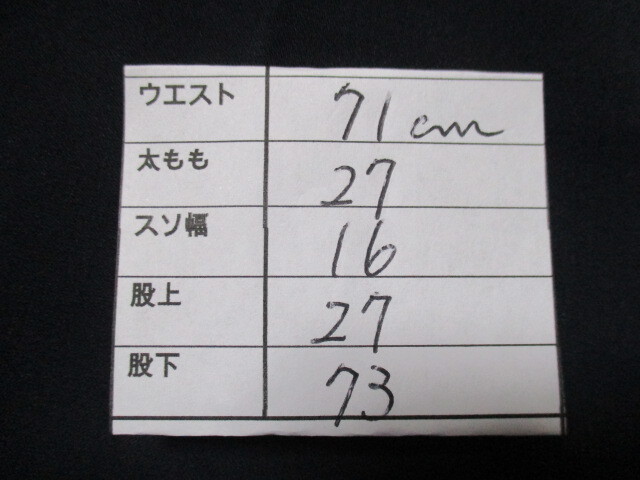 ウエスト 71cm
太もも 27
スソ幅 16
股上 27
股下 73